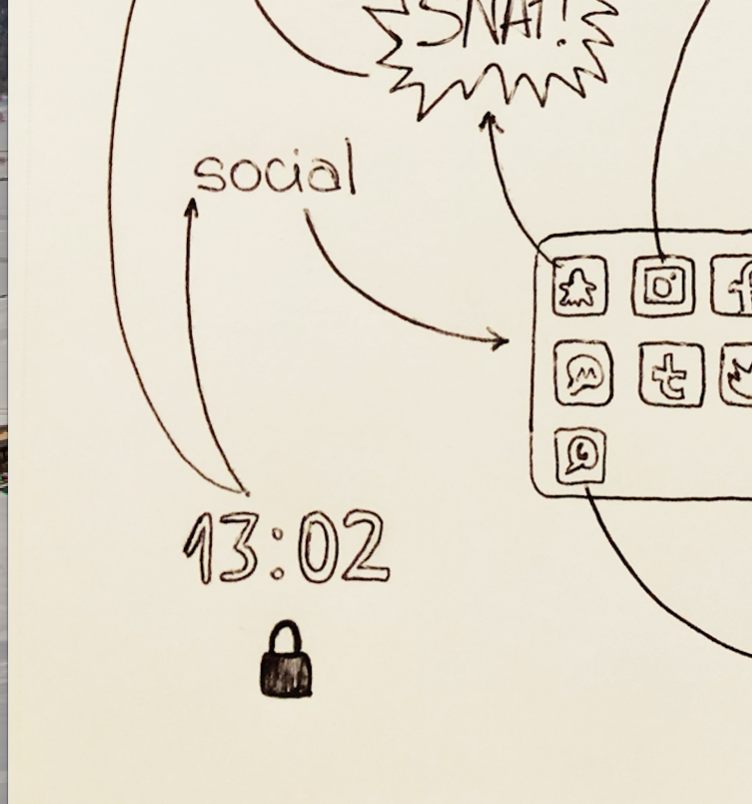 SNAP!
social
13:02